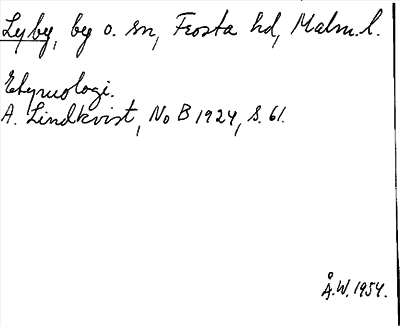 Lyby, by o. sn, Frosta hd, Malm. l.
Etymologi.
A. Lindkvist, No B 1924, S. 61.
Å. W. 1954.